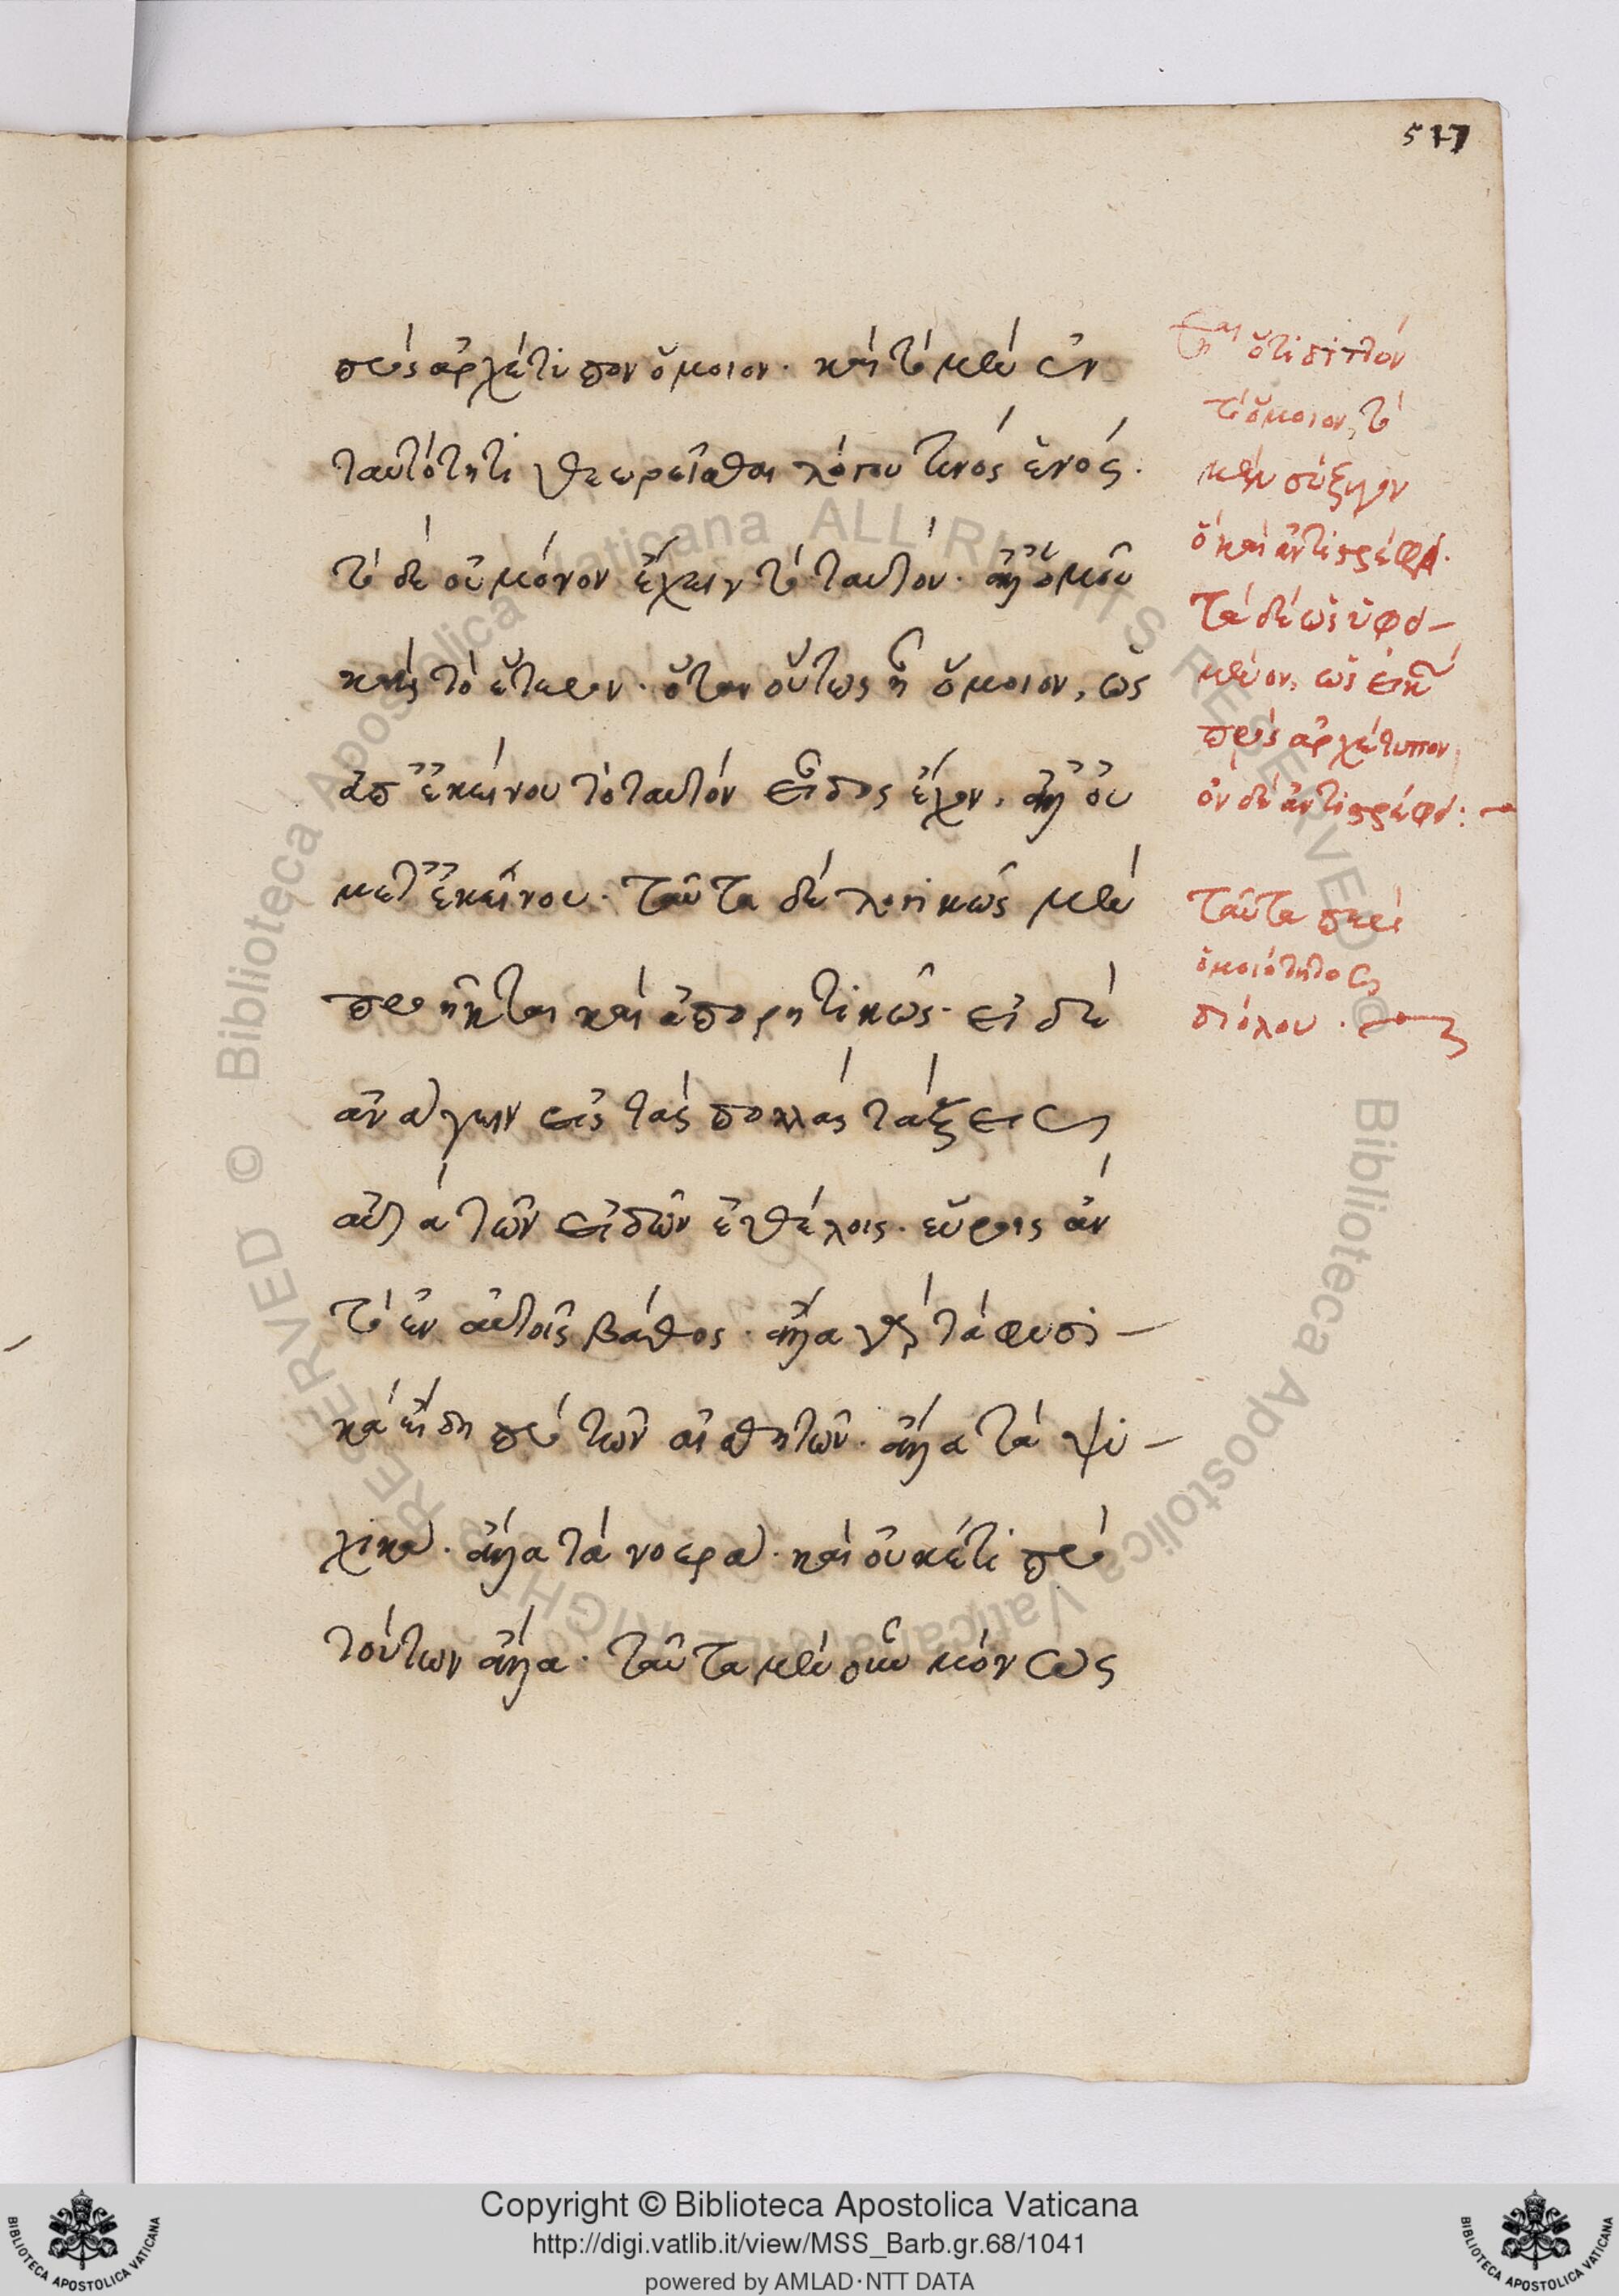 517
πρὸς ἀρχέτιπον ὅμοιον· καὶ τὸ μὲν ἐν
ταυτότητι θεωρεῖσθαι λόγου τινὸς ἑνός·
τὸ δὲ οὐ μόνον ἔχειν τὸ ταυτὸν· ἀλλ' ὁμοῦ
καὶ τὸ ἕτερον· ὅταν οὕτως ᾖ ὅμοιον, ὡς
ἀπ' ἐκείνου τὸ ταυτὸν εἶδος ἔχον, ἀλλ' οὐ
μετ' ἐκείνου· ταῦτα δὲ λογικῶς μὲν
προῆκται καὶ ἀπορητικῶς· εἰ δὲ
ἀνάγειν εἰς τὰς πολλὰς τάξεις
αὐτὰ τῶν εἰδῶν ἐθέλοις· εὕροις ἂν
τὸ ἐν αὐτοῖς βάθος· ἄλλα γὰρ τὰ φυσι-
κὰ εἴδη πρὸ τῶν αἰσθητῶν· ἄλλα τὰ ψυ-
χικὰ· ἄλλα τὰ νοερὰ· καὶ οὐκέτι πρὸ
τούτων ἄλλα· ταῦτα μὲν οὖν μόνως
ὅτι διπλὸν
τὸ ὅμοιον, τὸ
μὲν σύζυγον
ὃ καὶ ἀντιστρέφει·
τὸ δὲ ὡς ὑφει-
μένον, ὡς εἰκὼν
πρὸς ἀρχέτυπον
οὐδὲ ἀντιστρέφει:
ταῦτα περὶ
ὁμοιότητος
διόλου·
Copyright © Biblioteca Apostolica Vaticana
http://digi.vatlib.it/view/MSS_Barb.gr.68/1041
powered by AMLAD·NTT DATA
BIBLIOTECA APOSTOLICA VATICANA
BIBLIOTECA APOSTOLICA VATICANA
© Biblioteca Apostolica Vaticana ALL RIGHTS RESERVED
© Biblioteca Apostolica Vaticana ALL RIGHTS RESERVED